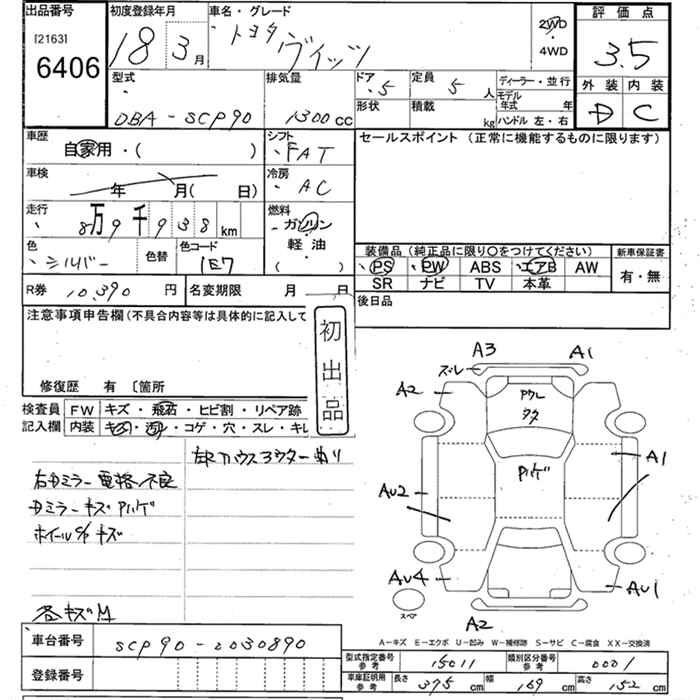 出品番号 初度登録年月 車名・グレード 2WD・4WD 評価点
[2163] 6406 18 3月 トヨタ ヴィッツ 3.5
型式 排気量 ドア 5 定員 5人 ディーラー・並行 外装 内装
DBA-SCP90 1300cc 形状 積載 kg モデル年式 年 D C
ハンドル 左・右
車歴 シフト セールスポイント (正常に機能するものに限ります)
自家用・( ) FAT
車検 年 月( 日) 冷房 AC
走行 8万9千938km 燃料 ガソリン
軽油
( )
色 シルバー 色替 色コード 1E7
装備品 (純正品に限り○をつけてください) 新車保証書
PS PW ABS エアB AW 有・無
SR ナビ TV 本革
R券 10,390円 名変期限 月 日 後日品
注意事項申告欄 (不具合内容等は具体的に記入して
初出品
修復歴 有 〔箇所
検査員 FW キズ・飛石・ヒビ割・リペア跡
記入欄 内装 キズ・汚れ・コゲ・穴・スレ・キレ
右ドミラー電格不良
ドミラーキズPハゲ
ホイールc/pキズ
各キズM
A3 A1
ズレ
A2 Pハゲ A1
AU2
AU4 AU1
スペア A2
A-キズ E-エクボ U-凹み W-補修跡 S-サビ C-腐食 XX-交換済
車台番号 SCP90-2030890
登録番号
型式指定番号 参考 15011 類別区分番号 参考 0001
車庫証明用 参考 長さ 375cm 幅 169cm 高さ 152cm